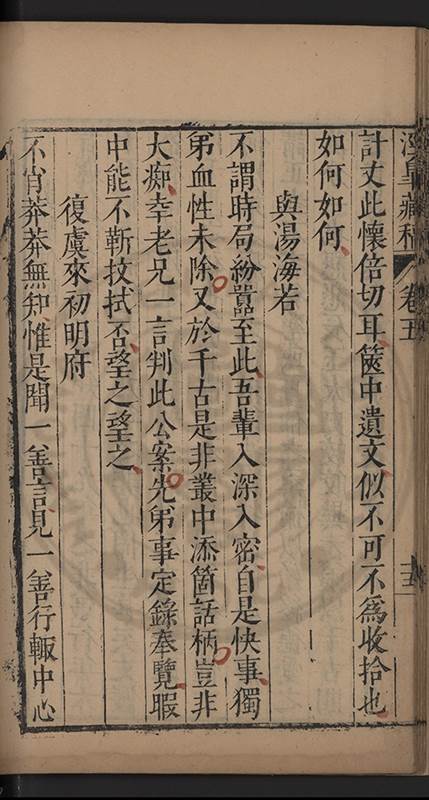 涇臯藏稿 卷五 十三
計丈此懷倍切耳篋中遺文似不可不爲收拾也
如何如何
與湯海若
不謂時局紛囂至此吾軰入深入密自是快事獨
弟血性未除又於千古是非叢中添箇話柄豈非
大痴幸老兄一言判此公案先弟事定錄奉覽暇
中能不靳抆拭否望之望之
復虞來初明府
不肖莽莽無知惟是聞一善言見一善行輙中心